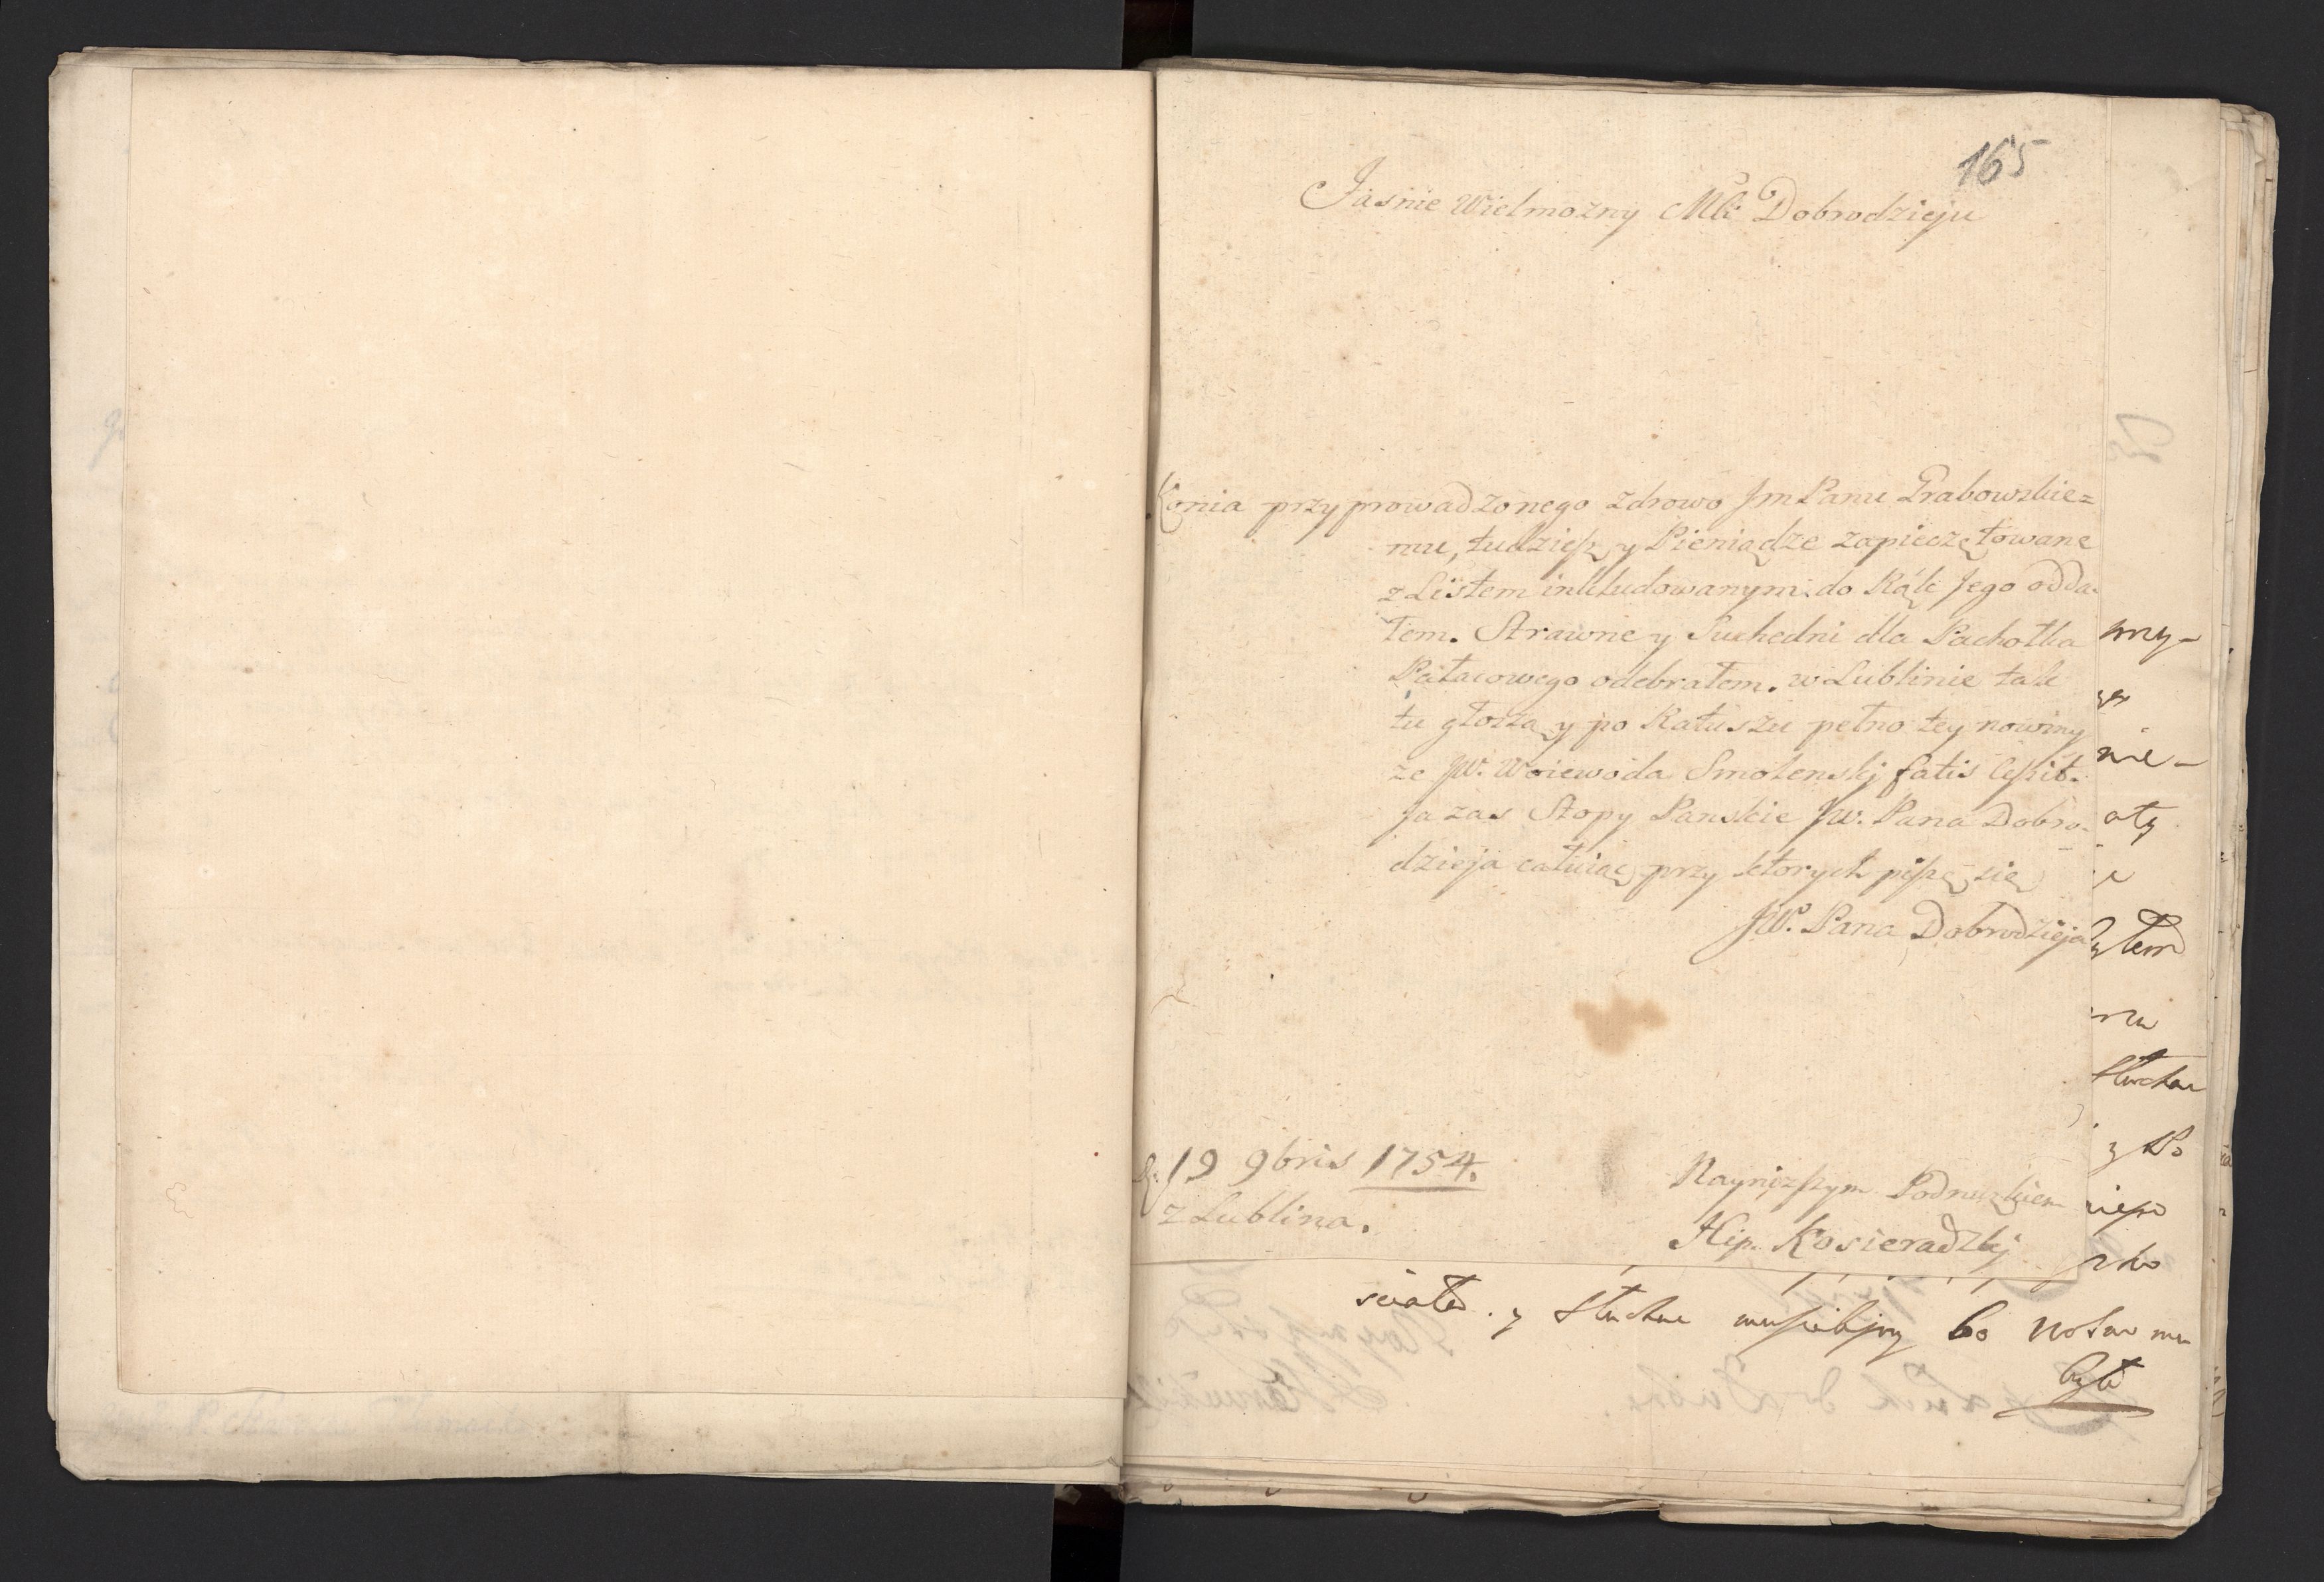 165
Jasnie Wielmozny Mći Dobrodzieju
Konia przyprowadzonego zdrowo Jm Panu Grabowskie=
mu, tudzieſz y Pieniądze zapieczętowane
z Listem inkludowanym do Rąk Jego odda-
łem. Strawne y Suchedni dla Pachołka
Pałacowego odebrałem. w Lublinie tak
tu głoszą y po Ratuszu pełno tey nowiny
ze JW. Woiewoda Smolenskj fatis ceſsit.
ja zas Stopy Panskie JW. Pana Dobro-
dzieja całuiąc przy ktorych piſzę się
JW. Pana Dobrodzieja
D: 19 9bris 1754.
z Lublina.
Nayniższym Podnuzkiem
Hip. Kosieradzkj
my-
nie-
aty
słuchac
y Po
y słuchac bo
był